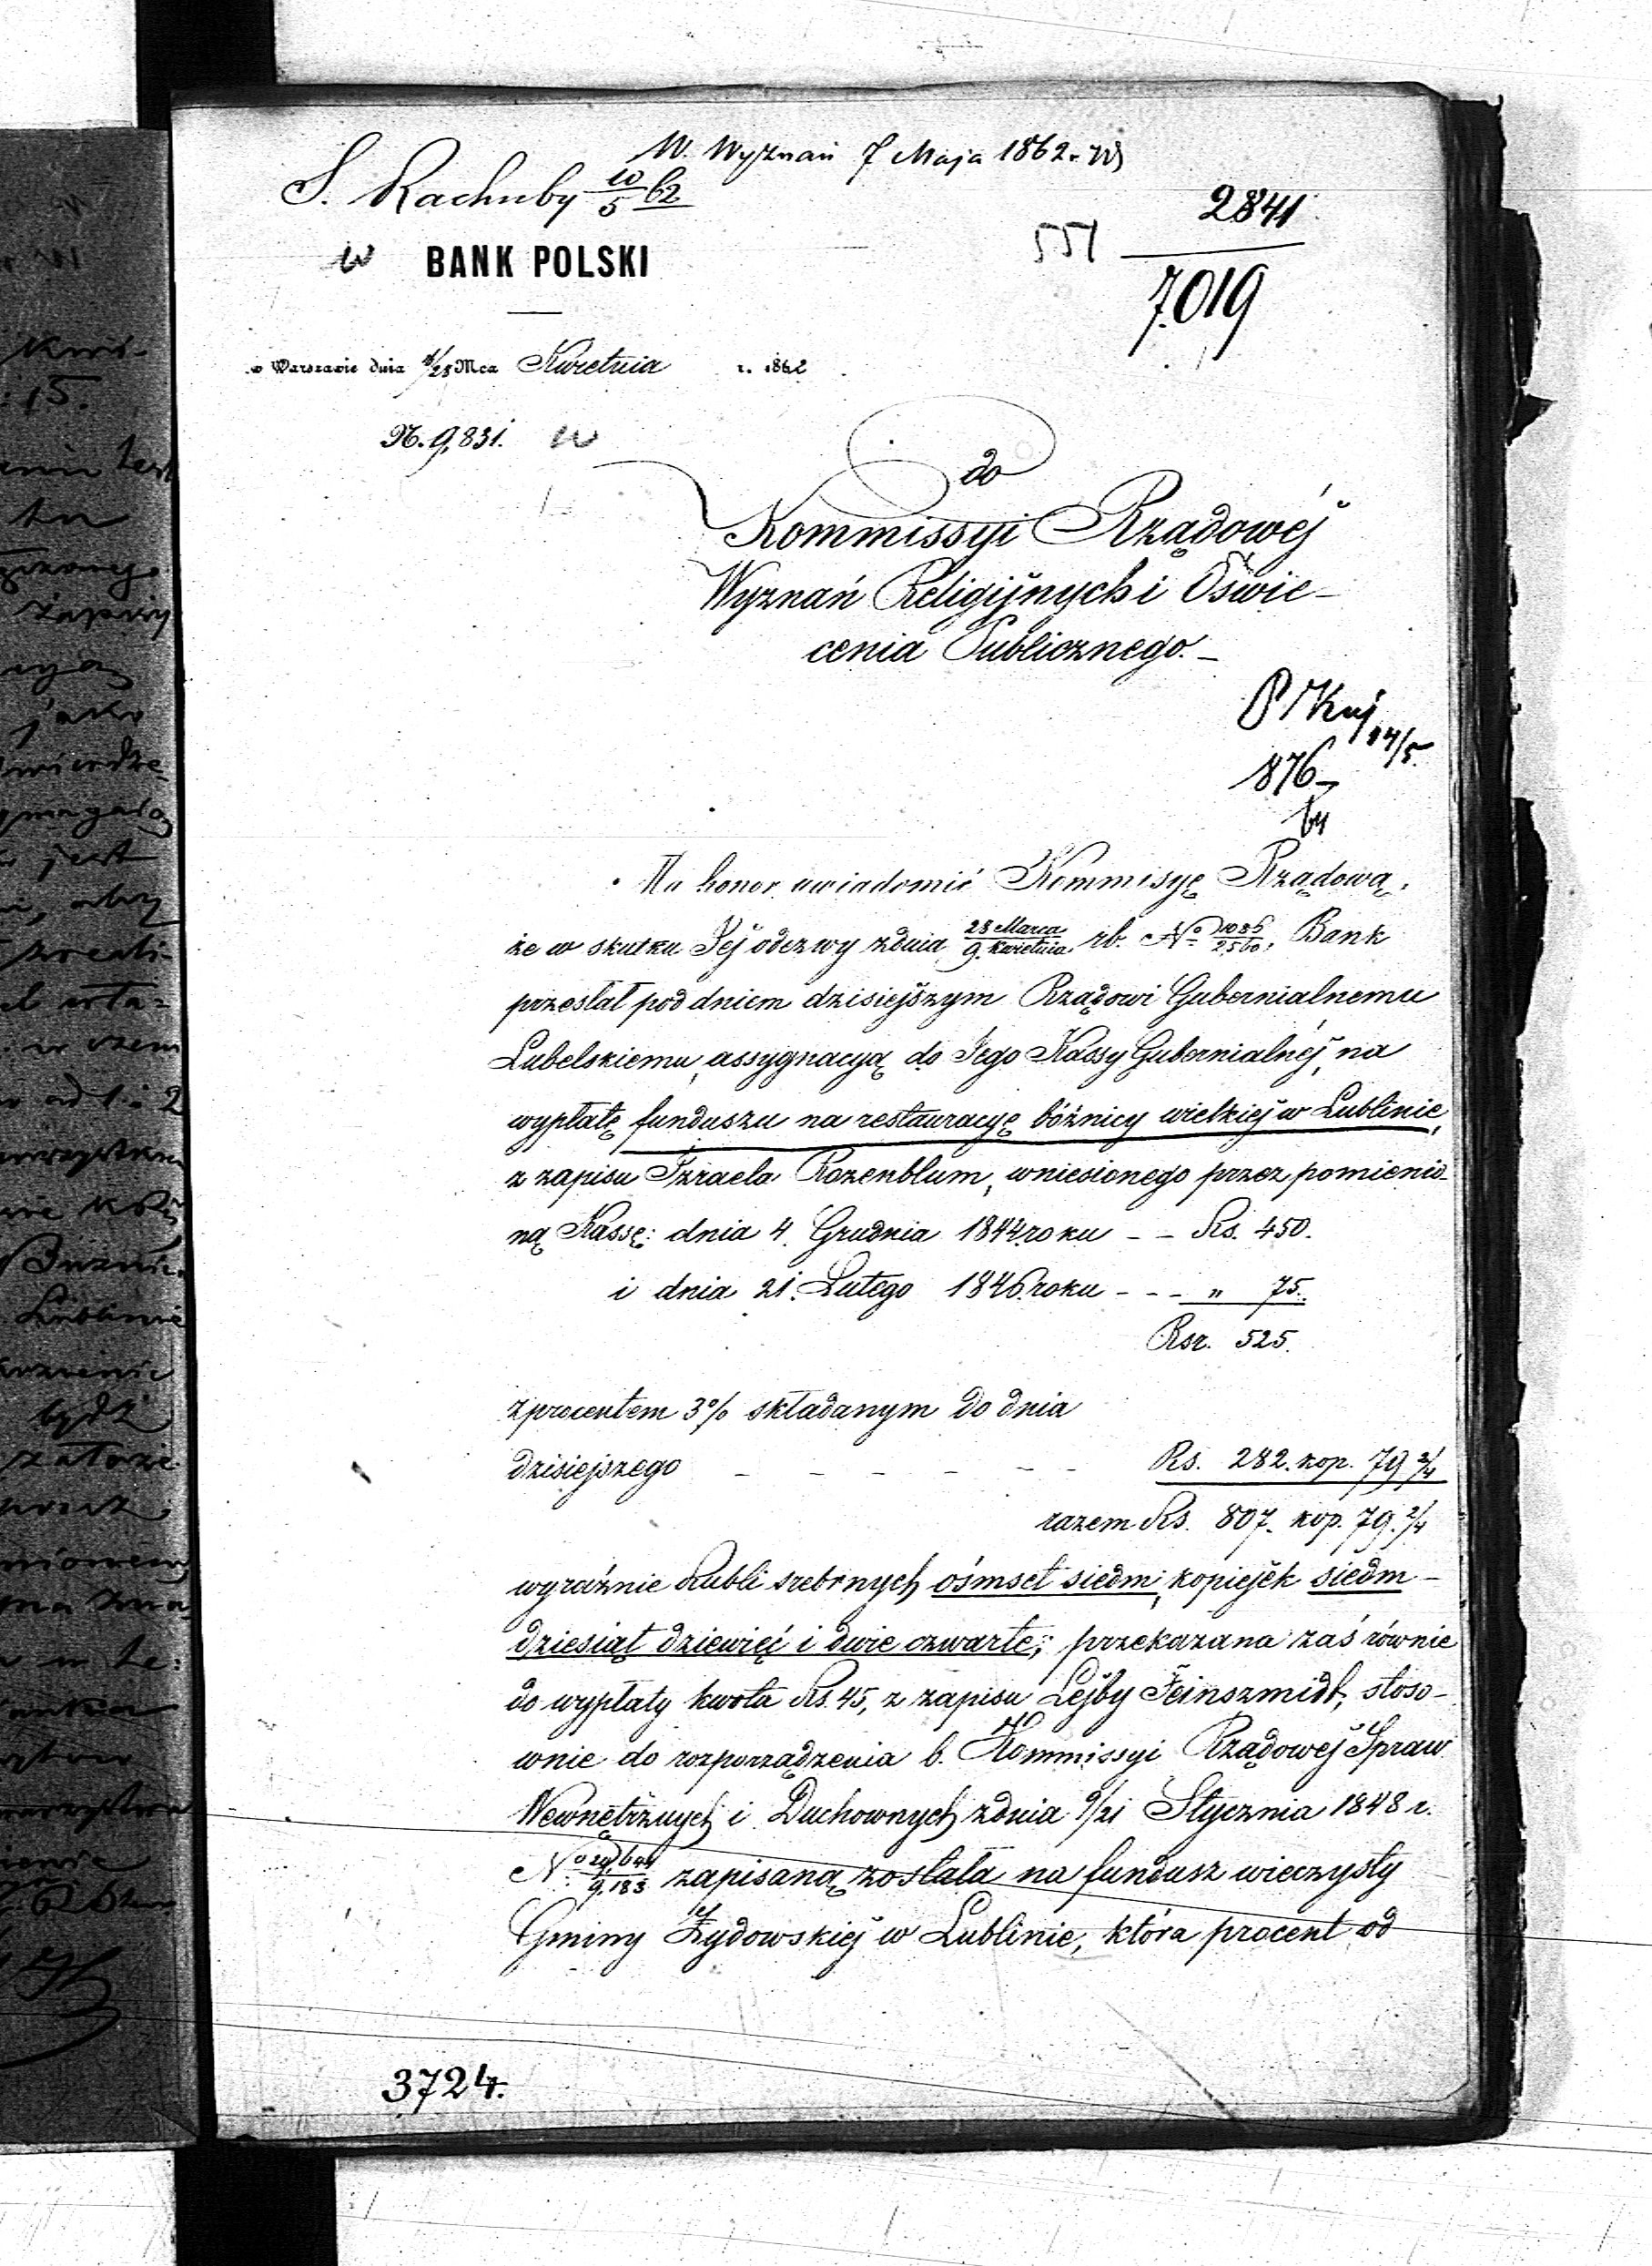 W. Wyznań 7 Maja 1862 r.
S. Rachuby 10/5 62
2841
551
7.019
BANK POLSKI
w Warszawie dnia /28 Mca Kwietnia r. 1862
N. 9,831.
do
Kommissyi Rządowéj
Wyznań Religijnych i Oświe-
cenia Publicznego.
14/5
876
Ma honor uwiadomić Kommisyę Rządową,
że w skutku Jéj odezwy z dnia 28 Marca/9. Kwietnia rb. No 1086/2560, Bank
przesłał pod dniem dzisiejszym Rządowi Gubernialnemu
Lubelskiemu, assygnacyą do Jego Kassy Gubernialnéj, na
wypłatę funduszu na restauracyę bóżnicy wielkiéj w Lublinie,
z zapisu Izraela Rozenblum, wniesionego przez pomienio-
ną Kassę: dnia 4. Grudnia 1844 roku - - Rs. 450.
i dnia 21. Lutego 1846 roku - - - " 75.
Rsr. 525.
z procentem 3% składanym do dnia
dzisiejszego - - - - - - Rs. 282. kop. 79 2/4
razem Rs. 807. kop. 79. 2/4
wyraźnie Rubli srebrnych ośmset siedm, kopiejek siedm-
dziesiąt dziewięć i dwie czwarte; przekazana zaś równie
do wypłaty kwota Rs. 45, z zapisu Lejby Feinszmidt, stoso-
wnie do rozporządzenia b. Kommissyi Rządowéj Spraw
Wewnętrznych i Duchownych z dnia 9/21 Stycznia 1848 r.
No /9,183 zapisaną została na fundusz wieczysty
Gminy Żydowskiéj w Lublinie, która procent od
3724.